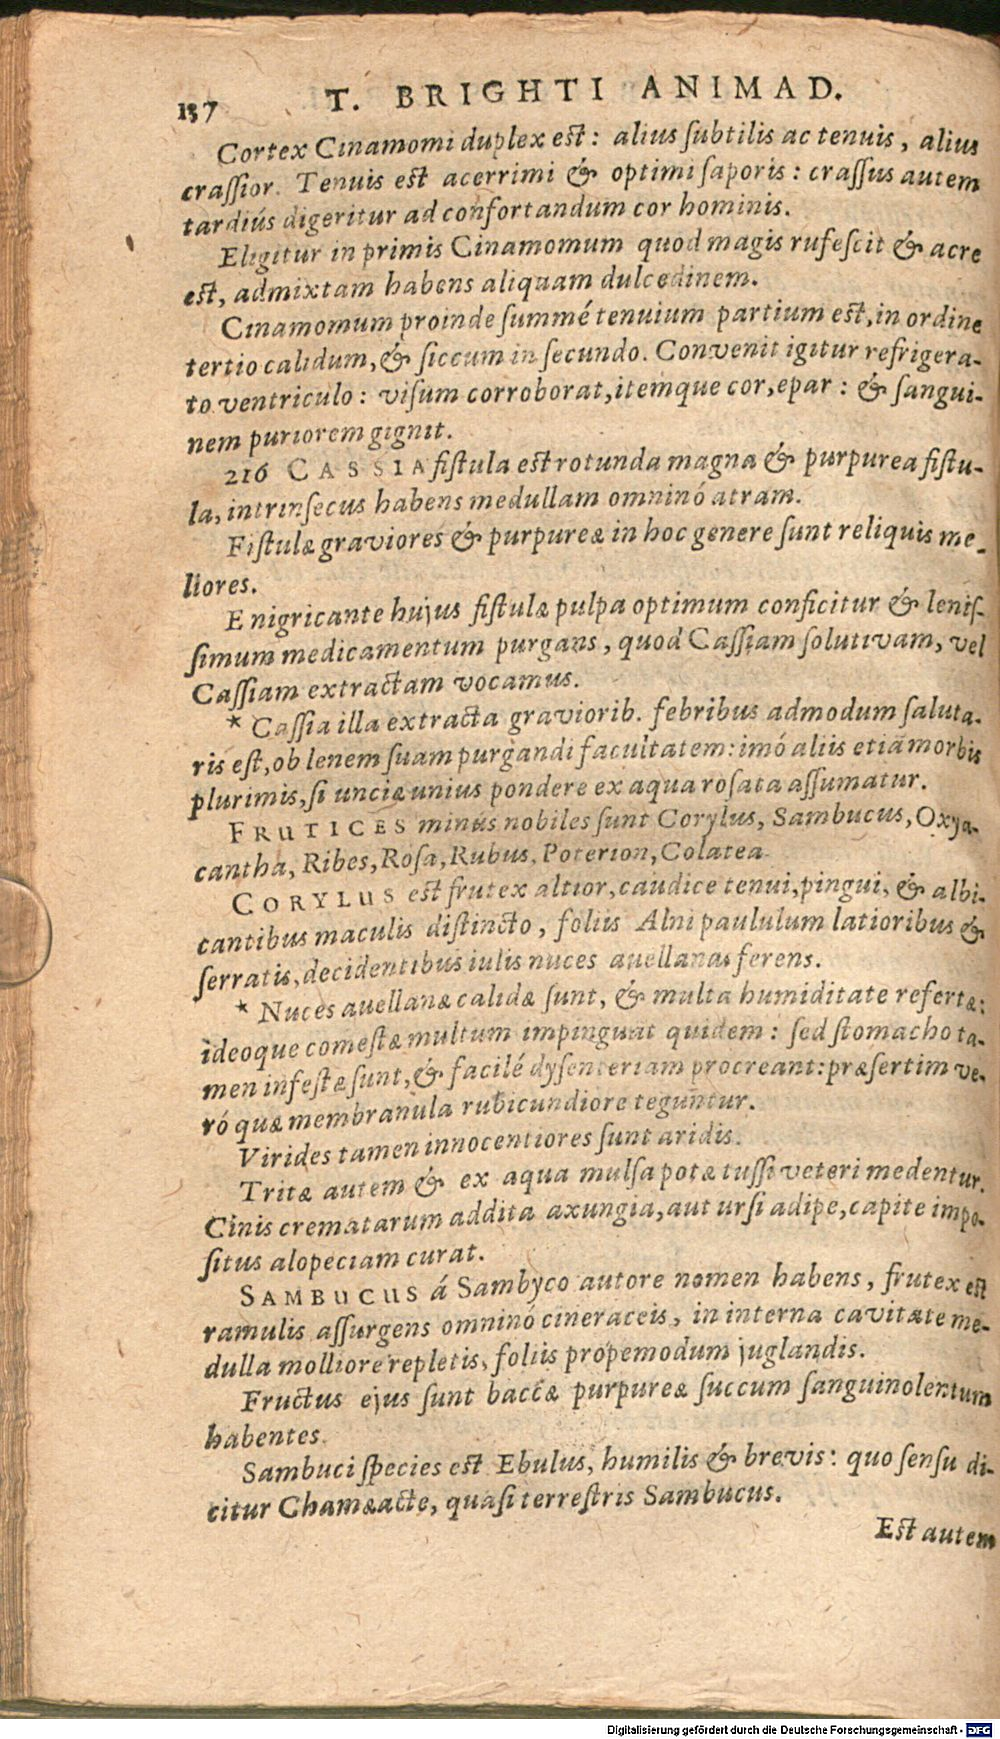 137 T. BRIGHTI ANIMAD.
Cortex Cinamomi duplex est: alius ſubtilis ac tenuis, alius
craſſior. Tenuis est acerrimi & optimi ſaporis: craſſus autem
tardiús digeritur ad confortandum cor hominis.
Eligitur in primis Cinamomum quod magis rufeſcit & acre
est, admixtam habens aliquam dulcedinem.
Cinamomum proinde ſummé tenuium partium est, in ordine
tertio calidum, & ſiccum in ſecundo. Convenit igitur refrigera-
to ventriculo: viſum corroborat, itemque cor, epar: & ſangui-
nem puriorem gignit.
216 CASSIA fiſtula est rotunda magna & purpurea fiſtu-
la, intrinſecus habens medullam omninó atram.
Fiſtulæ graviores & purpureæ in hoc genere ſunt reliquis me-
liores.
E nigricante hujus fiſtulæ pulpa optimum conficitur & leniſ-
ſimum medicamentum purgans, quod Caſſiam ſolutivam, vel
Caſſiam extractam vocamus.
* Caſſia illa extracta graviorib. febribus admodum ſaluta-
ris eſt, ob lenem ſuam purgandi facultatem: imó aliis etiā morbis
plurimis, ſi unciæ unius pondere ex aqua roſata aſſumatur.
FRUTICES minús nobiles ſunt Corylus, Sambucus, Oxya-
cantha, Ribes, Roſa, Rubus, Poterion, Colatea.
CORYLUS est frutex altior, caudice tenui, pingui, & albi-
cantibus maculis diſtincto, foliis Alni paululum latioribus &
ſerratis, decidentibus iulis nuces avellanas ferens.
* Nuces avellanæ calidæ ſunt, & multa humiditate refertæ:
ideoque comeſtæ multum impinguat quidem: ſed ſtomacho ta-
men infeſtæ ſunt, & facilé dyſenteriam procreant: præſertim ve-
ró quæ membranula rubicundiore teguntur.
Virides tamen innocentiores ſunt aridis.
Tritæ autem & ex aqua mulſa potæ tuſſi veteri medentur.
Cinis crematarum addita axungia, aut urſi adipe, capite impo-
ſitus alopeciam curat.
SAMBUCUS á Sambyco autore nomen habens, frutex est
ramulis aſſurgens omninó cineraceis, in interna cavitate me-
dulla molliore repletis, foliis propemodum juglandis.
Fructus ejus ſunt baccæ purpureæ ſuccum ſanguinolentum
habentes.
Sambuci ſpecies est Ebulus, humilis & brevis: quo ſenſu di-
citur Chamæacte, quaſi terreſtris Sambucus.
Est autem
Digitalisierung gefördert durch die Deutsche Forschungsgemeinschaft - DFG